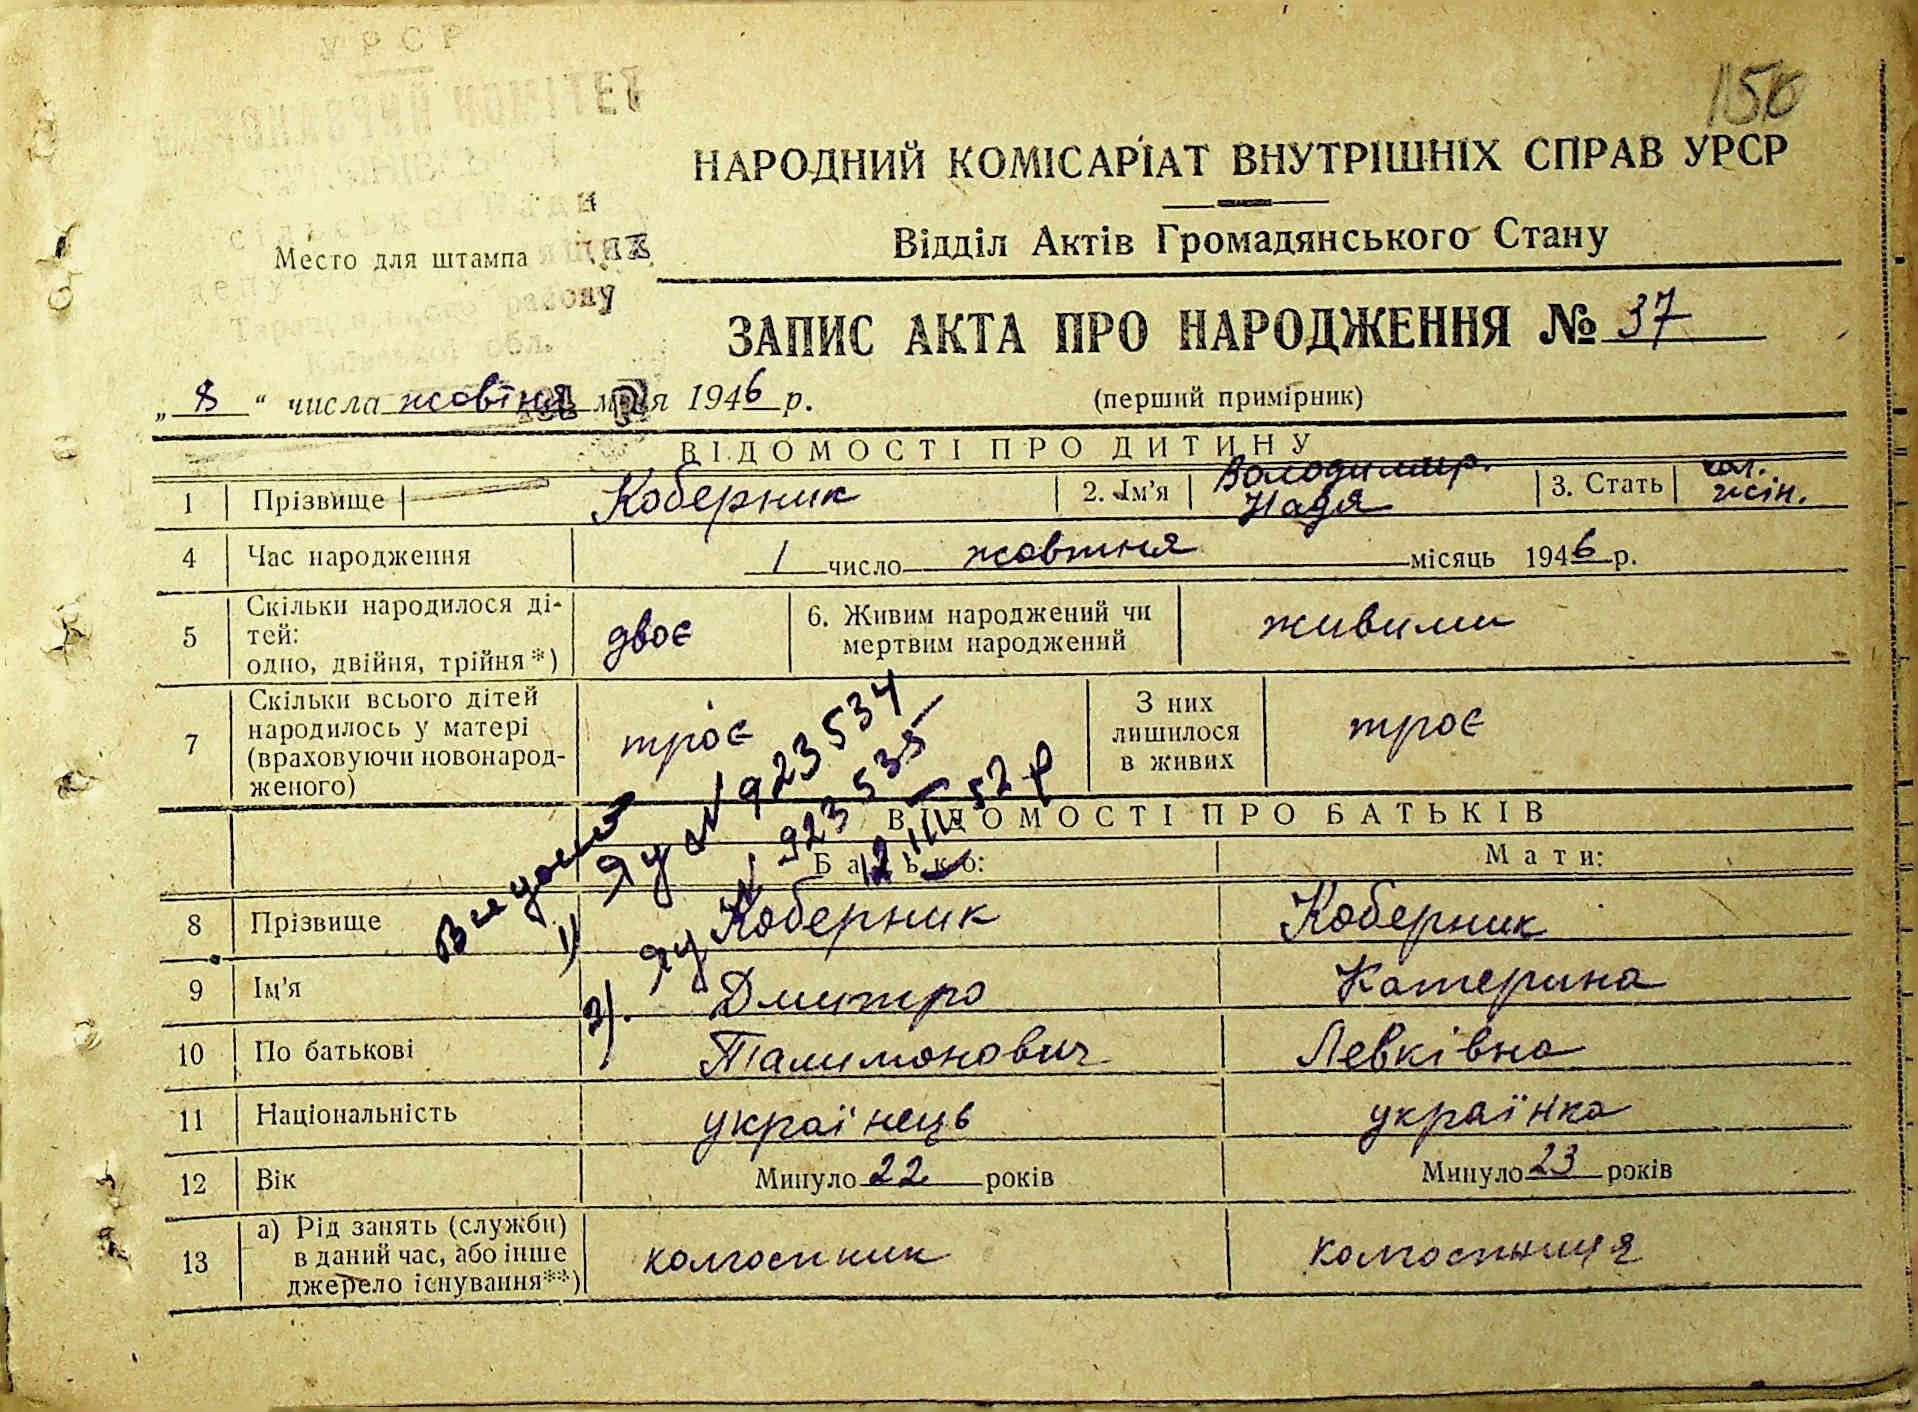 УРСР
150
НАРОДНИЙ КОМІСАРІАТ ВНУТРІШНІХ СПРАВ УРСР
Відділ Актів Громадянського Стану
Место для штампа
району
обл.
ЗАПИС АКТА ПРО НАРОДЖЕННЯ № 37
„ 8 “ числа жовтня м-ця 1946 р.
(перший примірник)
ВІДОМОСТІ ПРО ДИТИНУ
1 Прізвище Коберник 2. Ім’я Володимир. Надя 3. Стать чол. жін.
4 Час народження 1 число жовтня місяць 1946 р.
5 Скільки народилося ді-
тей:
одно, двійня, трійня*) двоє 6. Живим народжений чи
мертвим народжений живими
7 Скільки всього дітей
народилось у матері
(враховуючи новонарод-
женого) троє З них
лишилося
в живих троє
ВІДОМОСТІ ПРО БАТЬКІВ
Батько: Мати:
1) ЯУ № 923534
2). ЯУ № 923535
12/III 52 р
8 Прізвище Коберник Коберник
9 Ім’я Дмитро Катерина
10 По батькові Палимонович Левківна
11 Національність українець українка
12 Вік Минуло 22 років Минуло 23 років
13 а) Рід занять (служби)
в даний час, або інше
джерело існування**) колгоспник колгоспниця